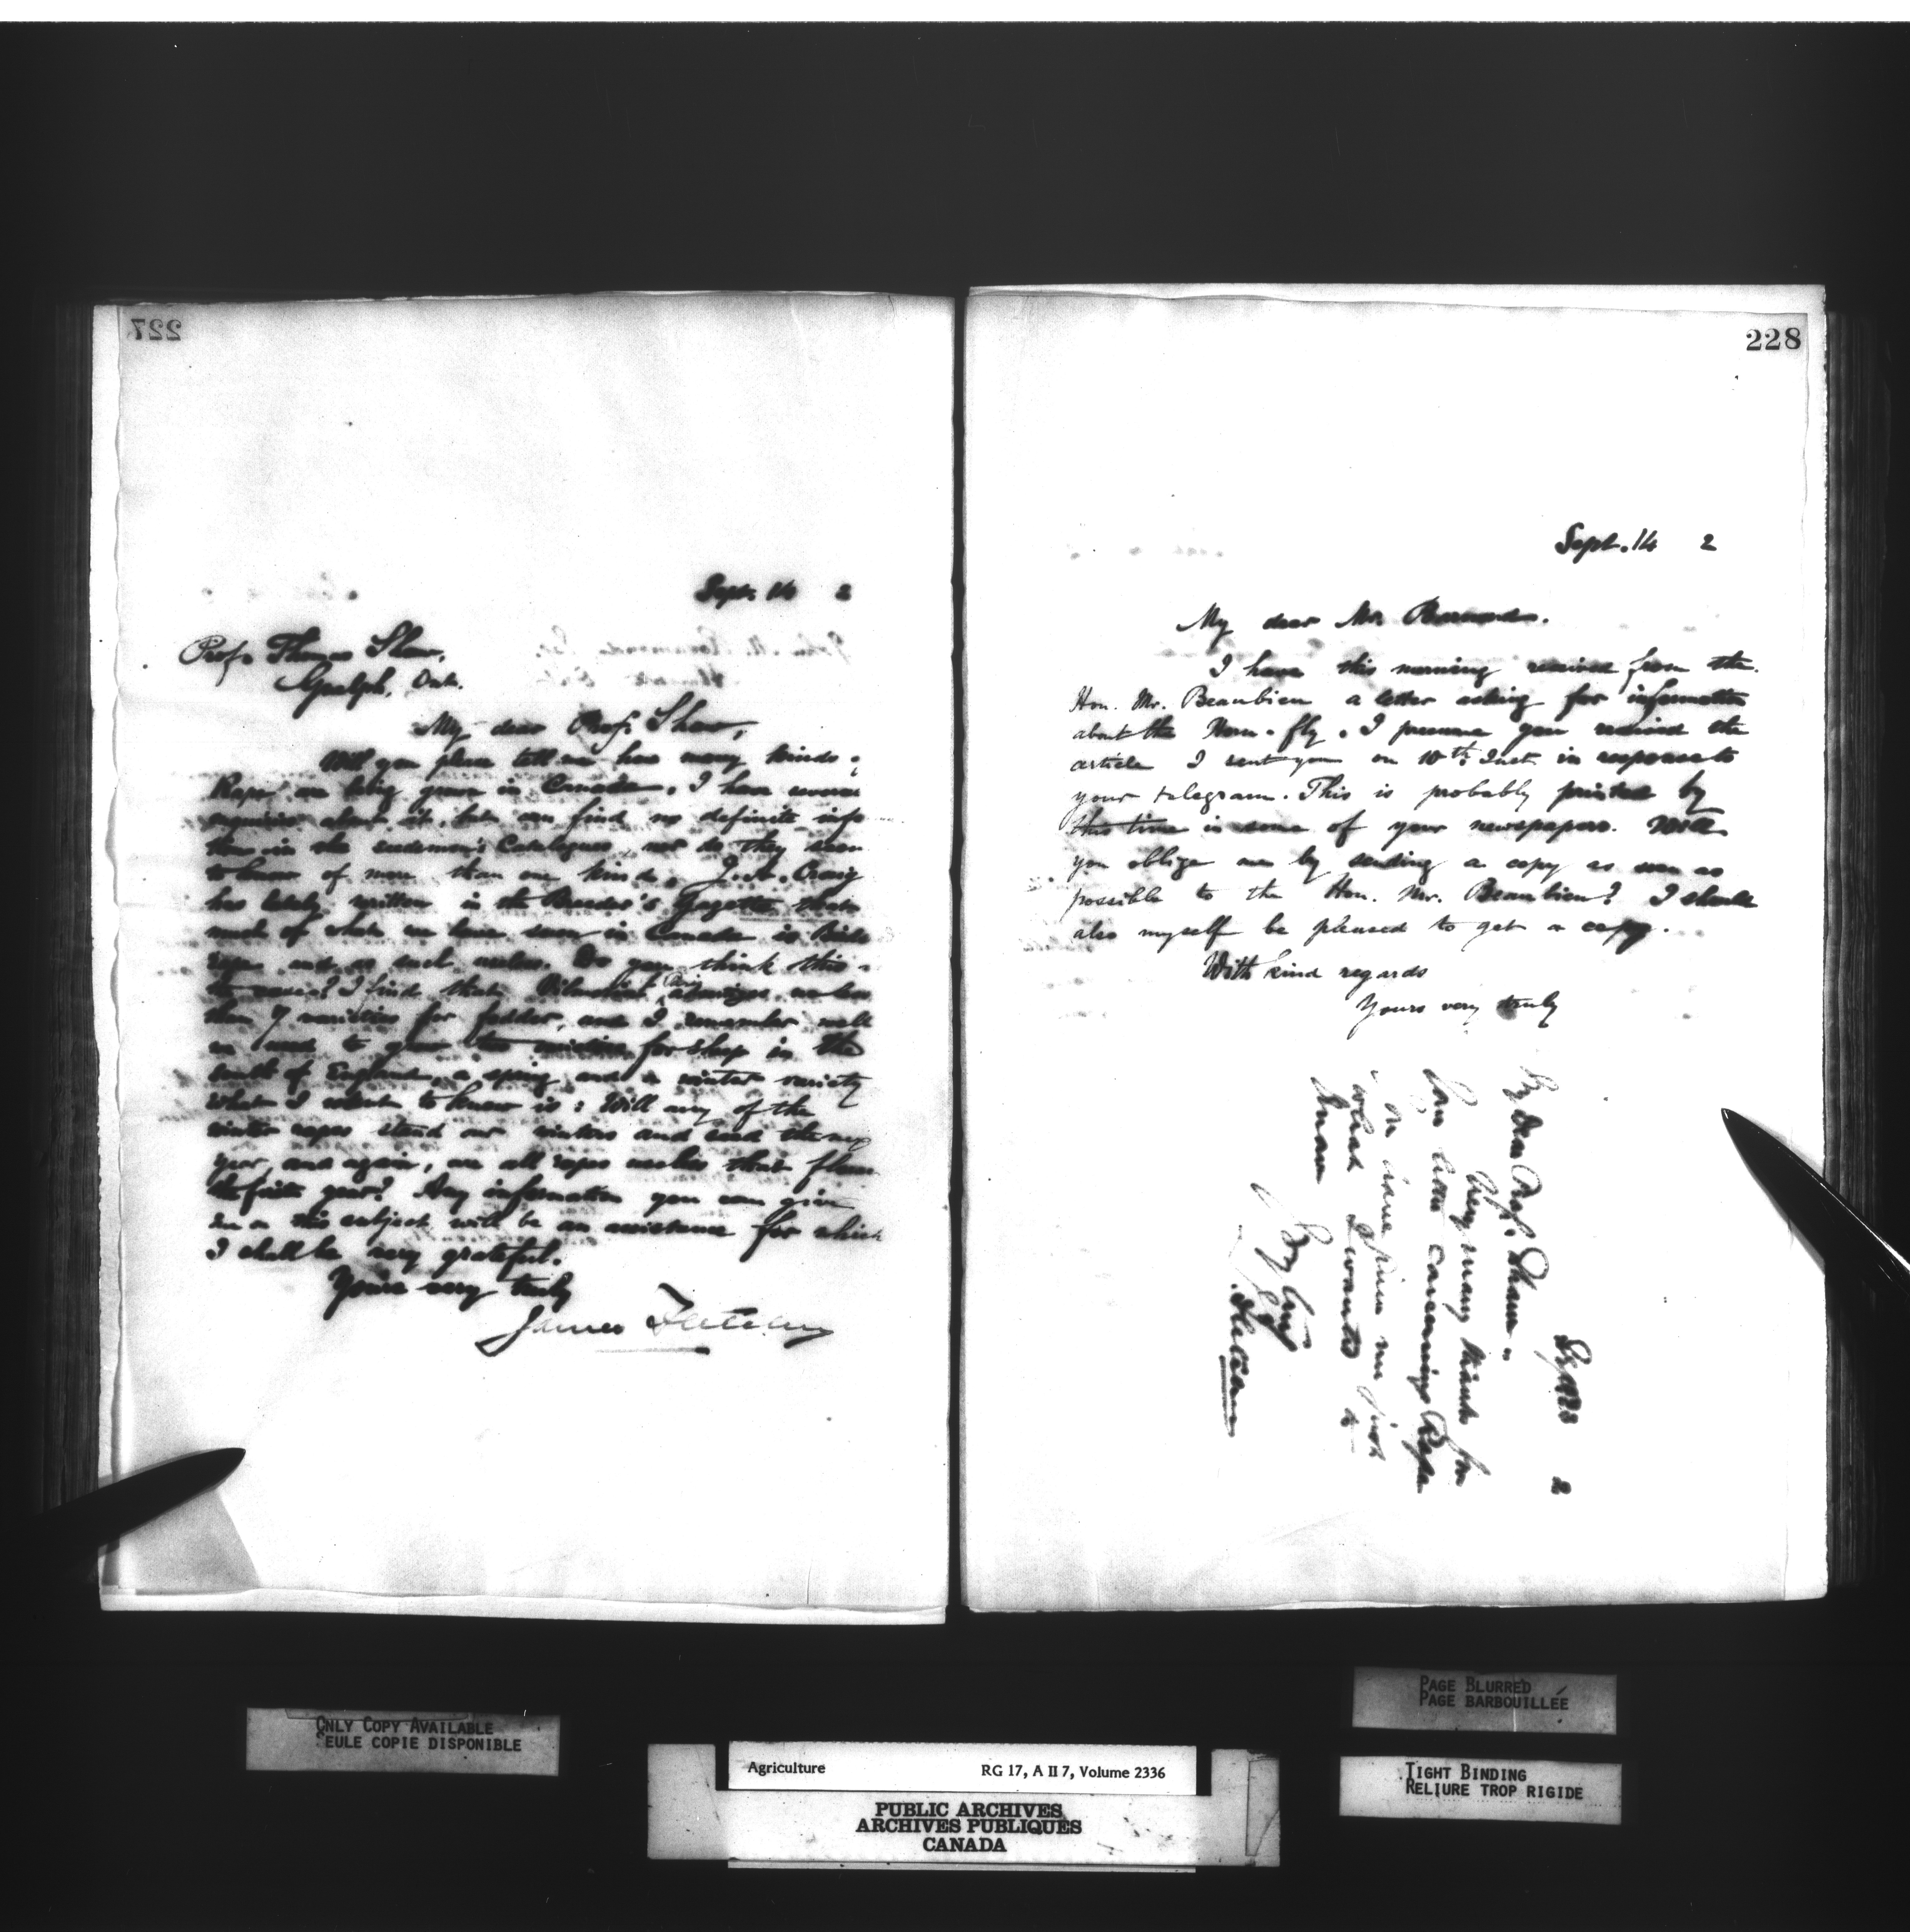 227
Sept. 14 2
Prof. Thomas Shaw,
Guelph, Ont.
My dear Prof. Shaw,
Will you please tell me how many kinds
Rape are being grown in Canada. I have several
enquiries about it, but can find no definite info
tion in the seedsmen's Catalogues, nor do they seem
to know of more than one kind. J. A. Craig
has lately written in the Breeder's Gazette that
much of what we have seen in Canada is Bird
rape and as such useless. Do you think this
the case? I find that Vilmorin of Paris
than 7 varieties for fodder, and I remember well
we used to grow two varieties for sheep in the
south of England, a spring and a winter variety
what I want to know is: Will any of the
winter rapes stand our winters and seed the
year, and again, are all rapes useless that flower
the first year? Any information you can give
me on this subject will be an assistance for which
I shall be very grateful.
Yours very truly
James Fletcher
228
Sept. 14 2
My dear Mr.
I have this morning received from the
Hon. Mr. Beaubien a letter asking for information
about the Horn-fly. I presume you received the
article I sent you on 10th Inst. in response to
your telegram. This is probably printed by
this time in some of your newspapers. Will
you oblige me by sending a copy as soon as
possible to the Hon. Mr. Beaubien? I should
also myself be pleased to get a copy.
With kind regards
Yours very truly
2
My dear Prof. Shaw
Very many thanks for
concerning Rape
have given me just
what I wanted to
know
Fletcher
ONLY COPY AVAILABLE
SEULE COPIE DISPONIBLE
PAGE BLURRED
PAGE BARBOUILLÉE
TIGHT BINDING
RELIURE TROP RIGIDE
Agriculture RG 17, A II 7, Volume 2336
PUBLIC ARCHIVES
ARCHIVES PUBLIQUES
CANADA